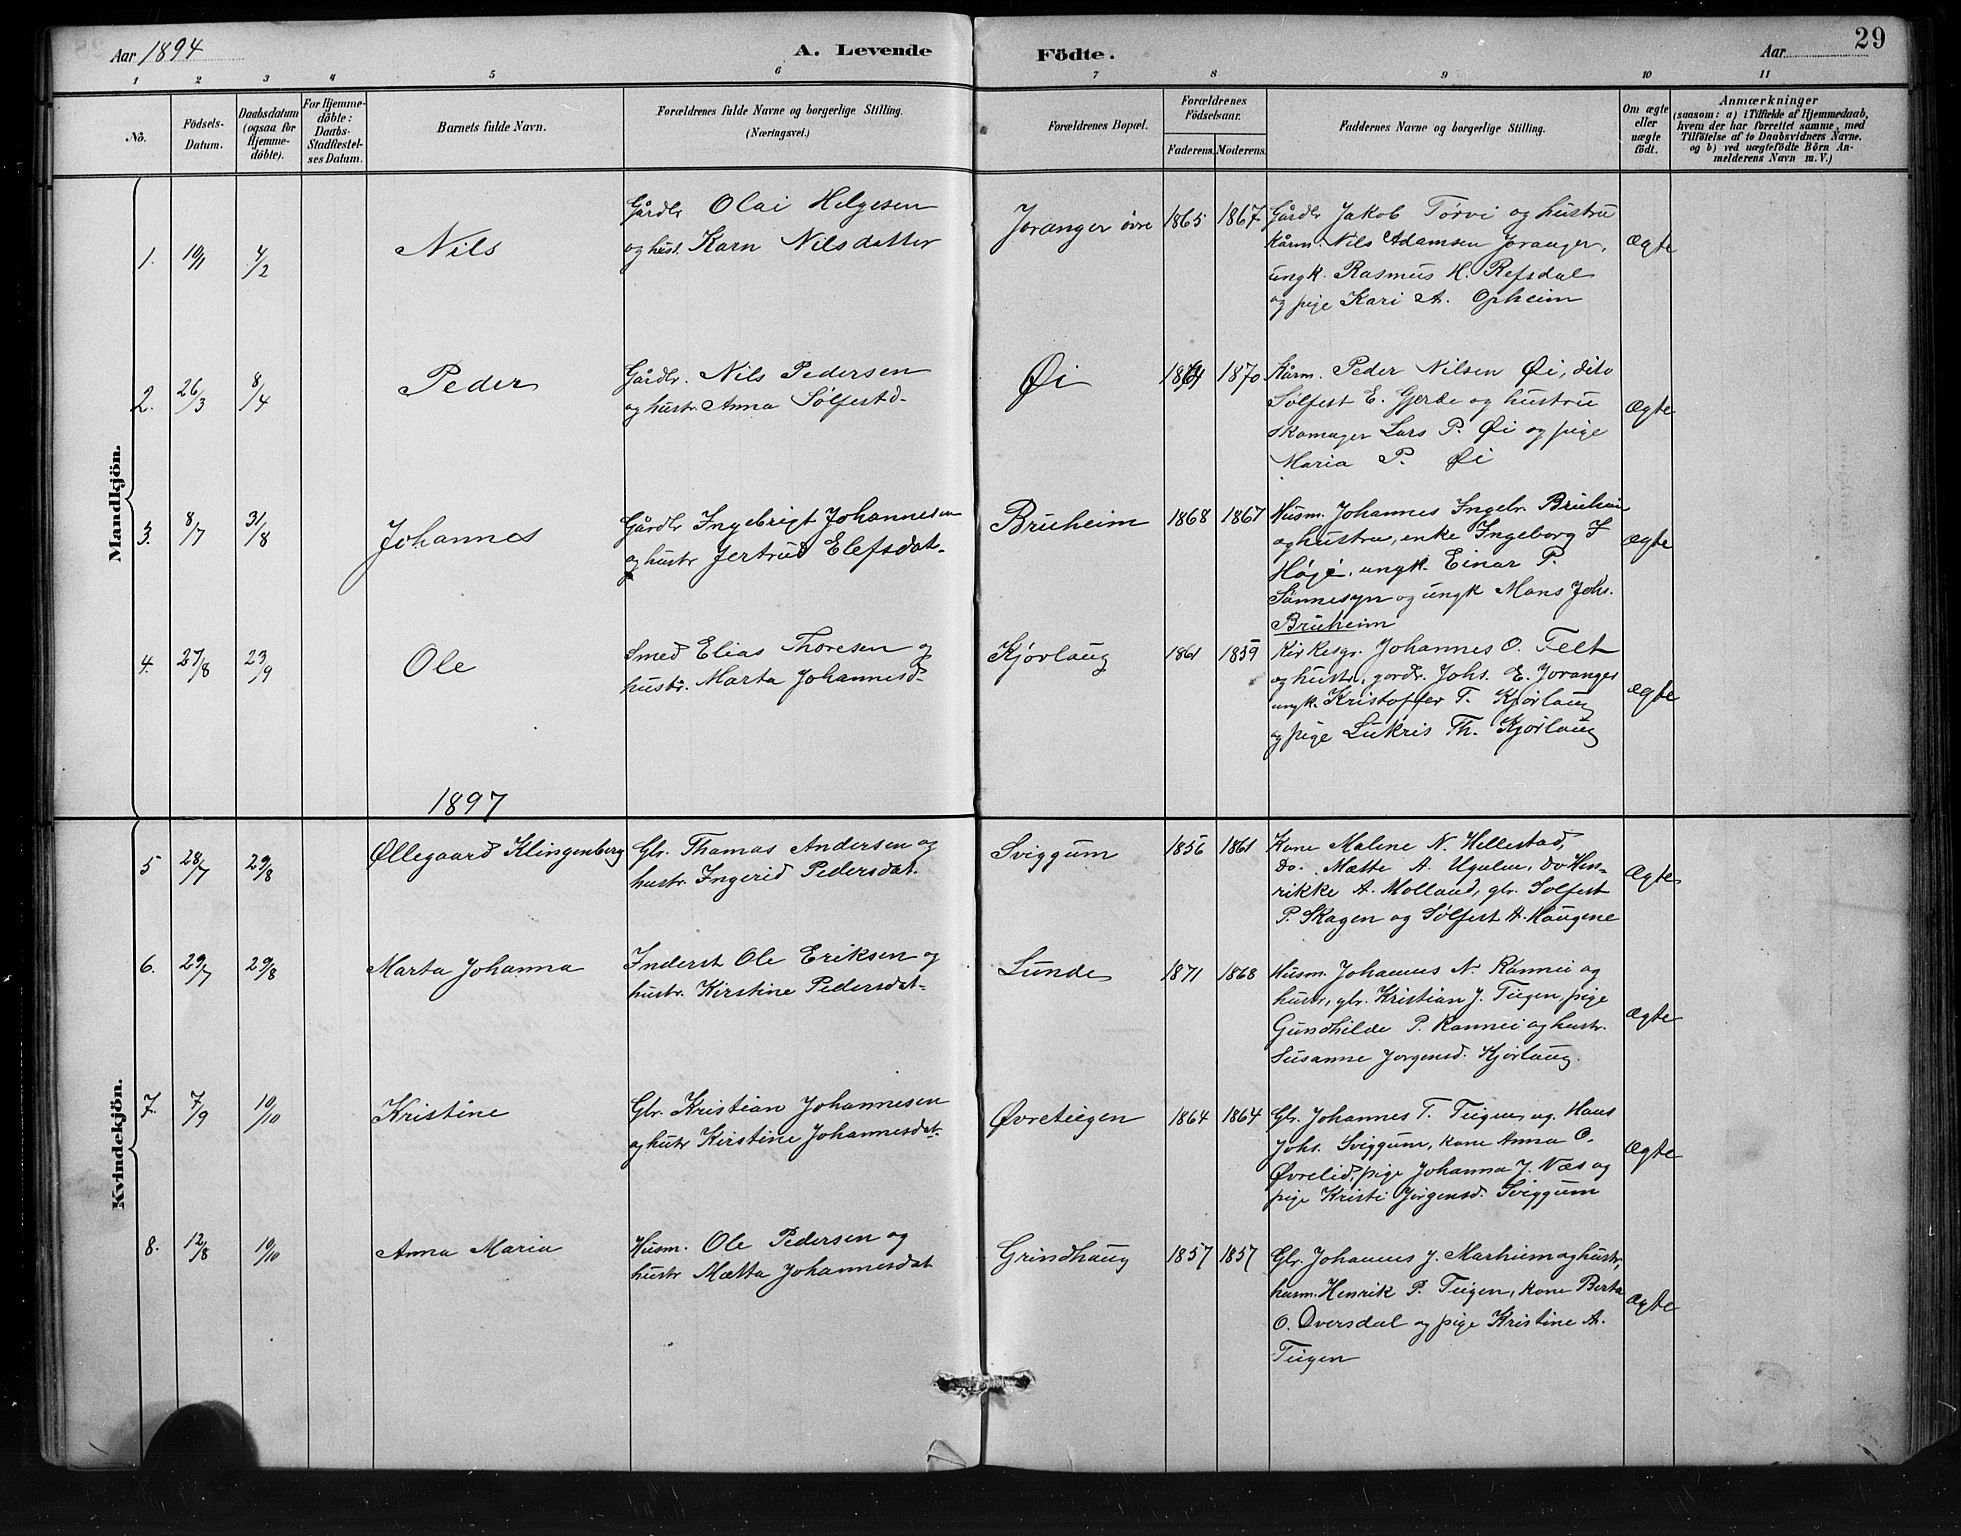 Aar 1894
A. Levende
Födte.
Aar
29
1 2 3 4 5 6 7 8 9 10 11
No.
Födsels-
Datum.
Daabsdatum
(ogsaa for
Hjemme-
döbte).
For Hjemme-
döbte:
Daabs-
Stadfæstel-
ses Datum.
Barnets fulde Navn.
Forældrenes fulde Navne og borgerlige Stilling.
(Næringsvei.)
Forældrenes Bopæl.
Forældrenes
Födselsaar.
Faderens. Moderens.
Faddernes Navne og borgerlige Stilling.
Om ægte
eller
uægte
födt.
Anmærkninger
(saasom: a) i Tilfælde af Hjemmedaab,
hvem der har forrettet samme, med
Tilföielse af to Daabsvidners Navne.
og b) ved uægtefödte Börn An-
melderens Navn m. V.)
Mandkjön.
1. 10/1 4/2 Nils
Gårdbr Olai Helgesen
og hust. Karn Nilsdatter
Joranger övre 1865 1867
Gårdbr Jakob Törvi og hustru
kårm. Nils Adamsen Joranger,
ungk. Rasmus H. Refsdal
og pige Kari A. Opheim
Ægte
2. 26/3 8/4 Peder
Gårdbr. Nils Pedersen
og hustr. Anna Sölfestd-
Øi 1864 1870
Kårm. Peder Nilsen Øi, dito
Sölfest E. Gjerde og hustru
skomager Lars P. Øi og pige
Maria P. Øi
Ægte
3. 8/7 31/8 Johannes
Gårdbr Ingebrigt Johannesen
og hustr Jertrud Elefsdat-
Bruheim 1868 1867
Husm. Johannes Ingebr. Bruheim
og hustru, enke Ingeborg J
Høje, ungk. Einar P.
Sönnesyn og ungk Mons Johs.
Bruheim
Ægte
4. 27/8 23/9 Ole
Smed Elias Thoresen og
hustr. Marta Johannesd-
Kjørlaug 1861 1859
Kirkesgr. Johannes O. Felt
og hustr, gardr. Johs. E. Joranger
ungk. Kristoffer T. Kjørlaug
og pige Lukris Th. Kjørlaug
Ægte
1897
Kvindekjön.
5 28/7 29/8 Øllegaard Klingenberg
Gbr. Thomas Andersen og
hustr. Ingerid Pedersdat.
Sviggum 1856 1861
Kone Malene N. Hellestad,
Do. Mætte A. Ugulen, do Hen-
rikke A. Molland, gbr. Solfest
P. Skagen og Sölfest A. Haugene
Ægte
6. 29/7 29/8 Marta Johanna
Inderst Ole Eriksen og
hustr. Kirstine Pedersdat-
Lunde 1871 1868
Husm. Johannes N. Rønnei og
hustr, gbr. Kristian J. Teigen, pige
Gundhilde P. Rønnei og hustr.
Susanne Jorgensd. Kjørlaug.
Ægte
7. 7/9 10/10 Kristine
Gbr. Kristian Johannesen
og hustr Kirstine Johannesdat-
Øvreteigen 1864 1864
Gbr. Johannes T. Teigen, ug. Hans
Johs. Sviggum, kone Anna O.
Øvrelid, pige Johanna J. Næs og
pige Kristi Jörgensd. Sviggum
Ægte
8. 12/8 10/10 Anna Maria
Husm. Ole Pedersen og
hustr Mætta Johannesdat
Grindhaug 1857 1857
Gbr. Johannes J. Marheim og hustr,
husm. Henrik P. Teigen, kone Berta
O. Dversdal og pige Kristine A.
Teigen
Ægte